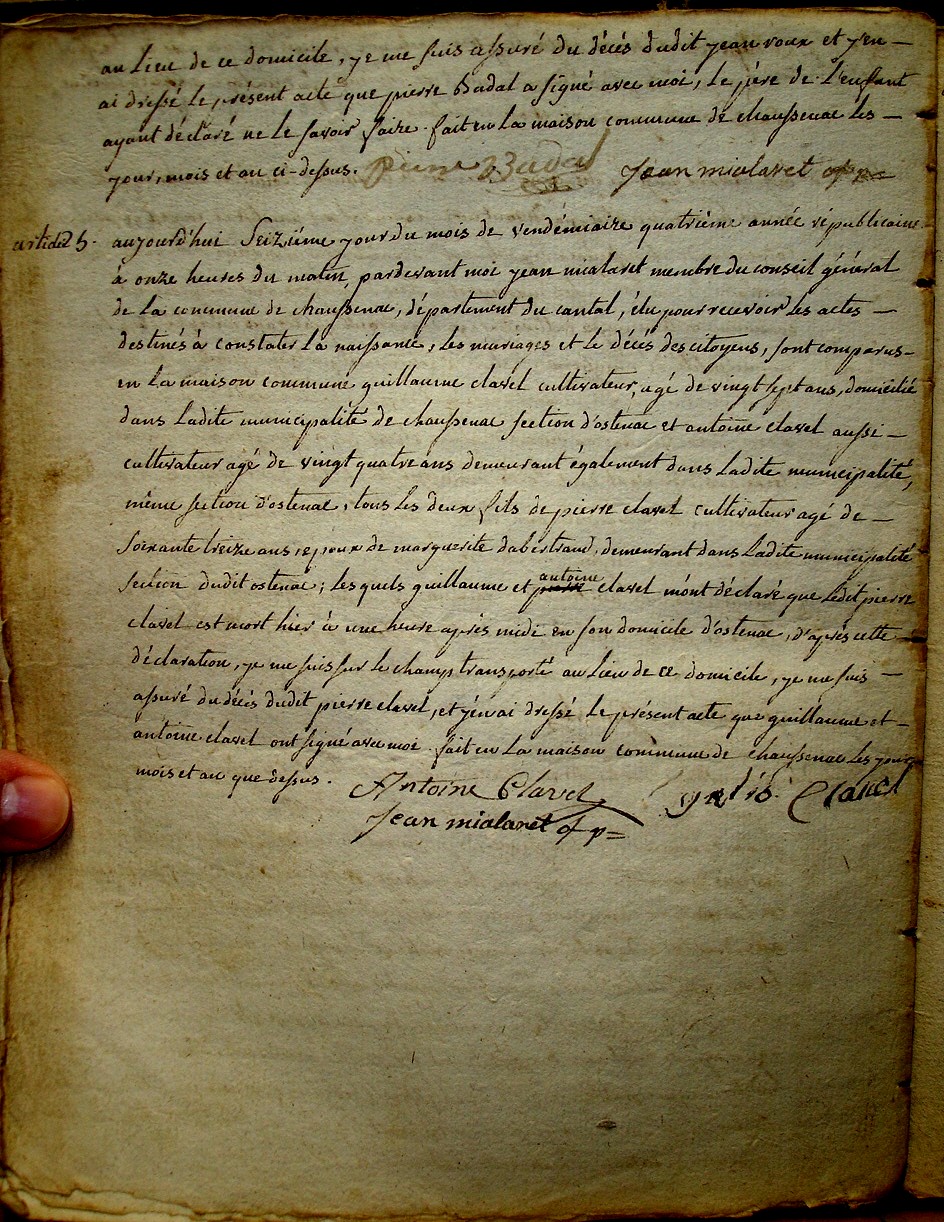 au Lieu de ce domicile, je me suis assuré du décés dudit jean roux et j'en —
ai dressé le présent acte que pierre Badal a signé avec moi, le père de l'enfant
ayant déclaré ne le savoir faire. fait en la maison commune de chaussenac les —
jour, mois et an ci-dessus. Pierre Badal Jean mialaret ofp=
article 5. aujourd'hui Seizième jour du mois de vendémiaire quatrième année républicaine
à onze heures du matin, pardevant moi jean mialaret membre du conseil général
de la commune de chaussenac, département du cantal, élu pour recevoir les actes —
destinés à constater la naissance, les mariages et le décès des citoyens, sont comparus —
en la maison commune guillaume clavel cultivateur, agé de vingt sept ans, domicilié
dans ladite municipalité de chaussenac section d'ostenac et antoine clavel aussi —
cultivateur agé de vingt quatre ans demeurant également dans ladite municipalité,
même section d'ostenac, tous les deux fils de pierre clavel cultivateur agé de —
soixante treize ans, epoux de marguerite dabertrand, demeurant dans ladite municipalité
section dudit ostenac; les quels guillaume et antoine clavel m'ont déclaré que ledit pierre
clavel est mort hier à une heure après midi en son domicile d'ostenac, d'après cette —
déclaration, je me suis sur le champ transporté au Lieu de ce domicile, je me suis —
assuré du décès dudit pierre clavel, et j'en ai dressé le présent acte que guillaume et —
antoine clavel ont signé avec moi. fait en la maison commune de chaussenac les jour
mois et an que dessus. Antoine Clavel Clavel
Jean mialaret ofp=